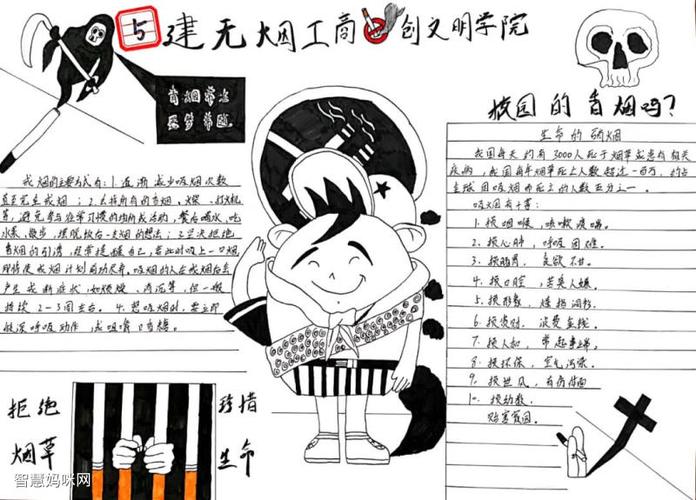 5建无烟工商 创文明学院
肯烟常龙
恶梦常随
戒烟的主要方式有:1.逐渐减少吸烟次数
直至完全戒烟;2.丢掉所有的香烟、火柴、打火机
等,避免参与往常习惯的场所或活动,餐后喝水、吃
水果、散步,摆脱饭后一支烟的想法;3.坚决拒绝
香烟的引诱,经常提醒自己,若此时吸上一口烟
即将使戒烟计划前功尽弃。吸烟的人在戒烟后会
产生戒断症状,如烦燥、消沉等,但一般
持续2-3周左右。4.想吸烟时,要立即
做深呼吸动作,或咀嚼口香糖。
拒绝
烟草
珍惜
生命
校园的香烟吗?
生命的硝烟
我国每天约有3000人死于烟草或患有相关
疾病,我国每年烟草死亡人数超过一百万,约占
全球因吸烟而死亡的人数五分之一。
吸烟有十害:
1.损咽喉,咳嗽疼痛。
2.损心肺,呼吸困难。
3.损肠胃,食欲不甘。
4.损口腔,苦臭人嫌。
5.损形象,
6.损资财,浪费金钱。
7.损人和,常起事端。
8.损环保,空气污染。
9.损世风,有伤情面
10.损幼教,
贻害家园。
智慧妈咪网